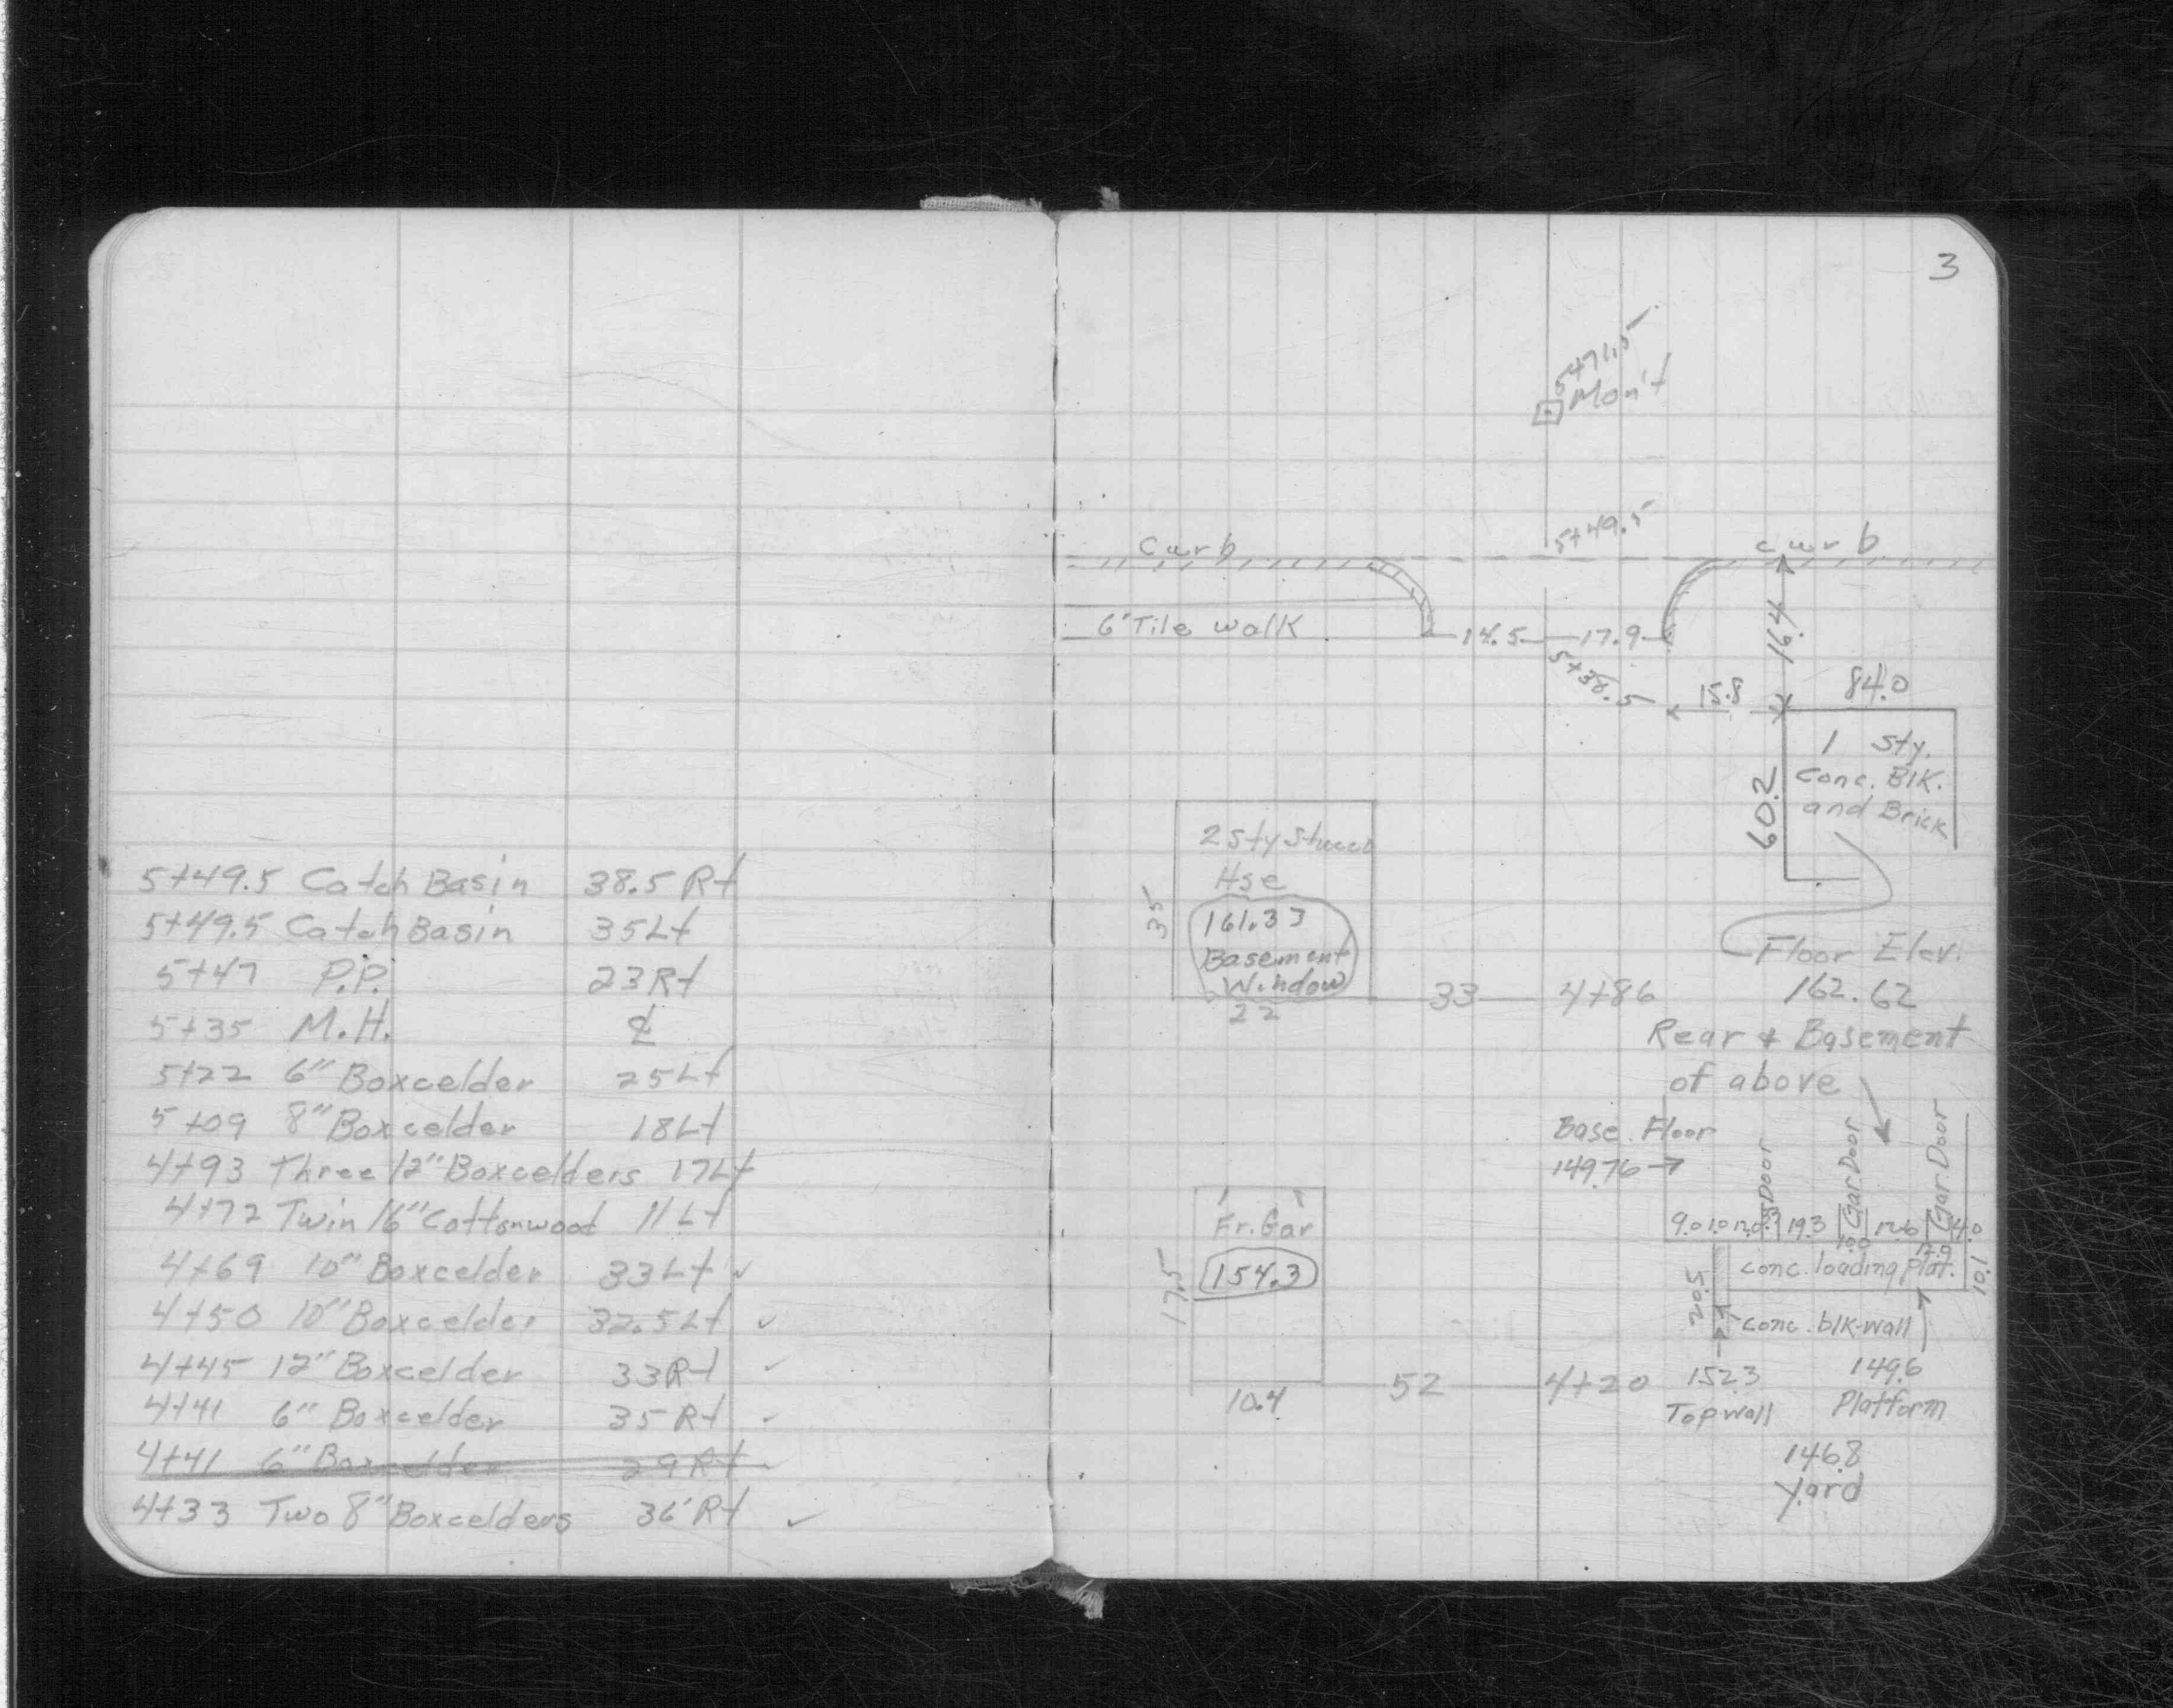 5+49.5 Catch Basin 38.5 Rt
5+49.5 Catch Basin 35 Lt
5+47 P.P. 23 Rt
5+35 M.H. ℄
5+22 6" Boxcelder 25 Lt
5+09 8" Boxcelder 18 Lt
4+93 Three 12" Boxcelders 17 Lt
4+72 Twin 16" Cottonwood 11 Lt
4+69 10" Boxcelder 33 Lt ✓
4+50 10" Boxcelder 32.5 Lt ✓
4+45 12" Boxcelder 33 Rt ✓
4+41 6" Boxcelder 35 Rt ✓
4+41 6" Boxcelder 29 Rt
4+33 Two 8" Boxcelders 36' Rt ✓
3
5+71.5
Mon't
5+49.5
curb
curb
6' Tile walk
14.5
17.9
16.4
5+38.5
15.8
84.0
1 Sty.
Conc. Blk.
and Brick
60.2
2 Sty Stucco
Hse
35
161.33
Basement
Window
22
33
4+86
Floor Elev.
162.62
Rear & Basement
of above
Base. Floor
149.76 →
Door
Gar. Door
Gar. Door
9.0
19.3
10.0
4.0
conc. loading plat.
10.1
20.5
conc. blk-wall
Fr. Gar
154.3
17.5
10.4
52
4+20
152.3
Top wall
149.6
Platform
146.8
Yard